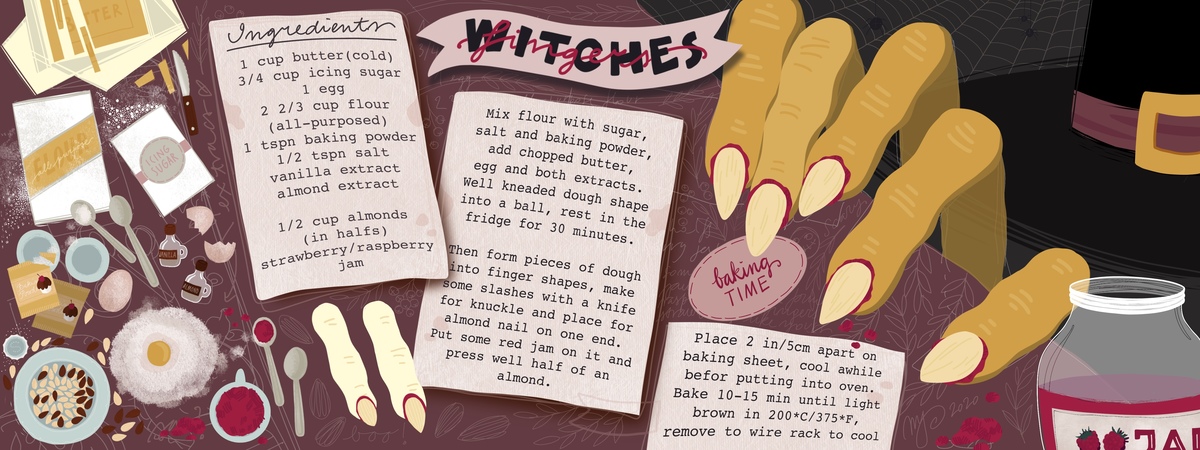 BUTTER
Ingredients
1 cup butter(cold)
3/4 cup icing sugar
1 egg
2 2/3 cup flour
(all-purposed)
1 tspn baking powder
1/2 tspn salt
vanilla extract
almond extract
1/2 cup almonds
(in halfs)
strawberry/raspberry
jam
WITCHES
fingers
Mix flour with sugar,
salt and baking powder,
add chopped butter,
egg and both extracts.
Well kneaded dough shape
into a ball, rest in the
fridge for 30 minutes.
Then form pieces of dough
into finger shapes, make
some slashes with a knife
for knuckle and place for
almond nail on one end.
Put some red jam on it and
press well half of an
almond.
baking
TIME
Place 2 in/5cm apart on
baking sheet, cool awhile
befor putting into oven.
Bake 10-15 min until light
brown in 200*C/375*F,
remove to wire rack to cool
FLOUR
all-purpose
ICING
SUGAR
VANILLA
ALMOND
JAM